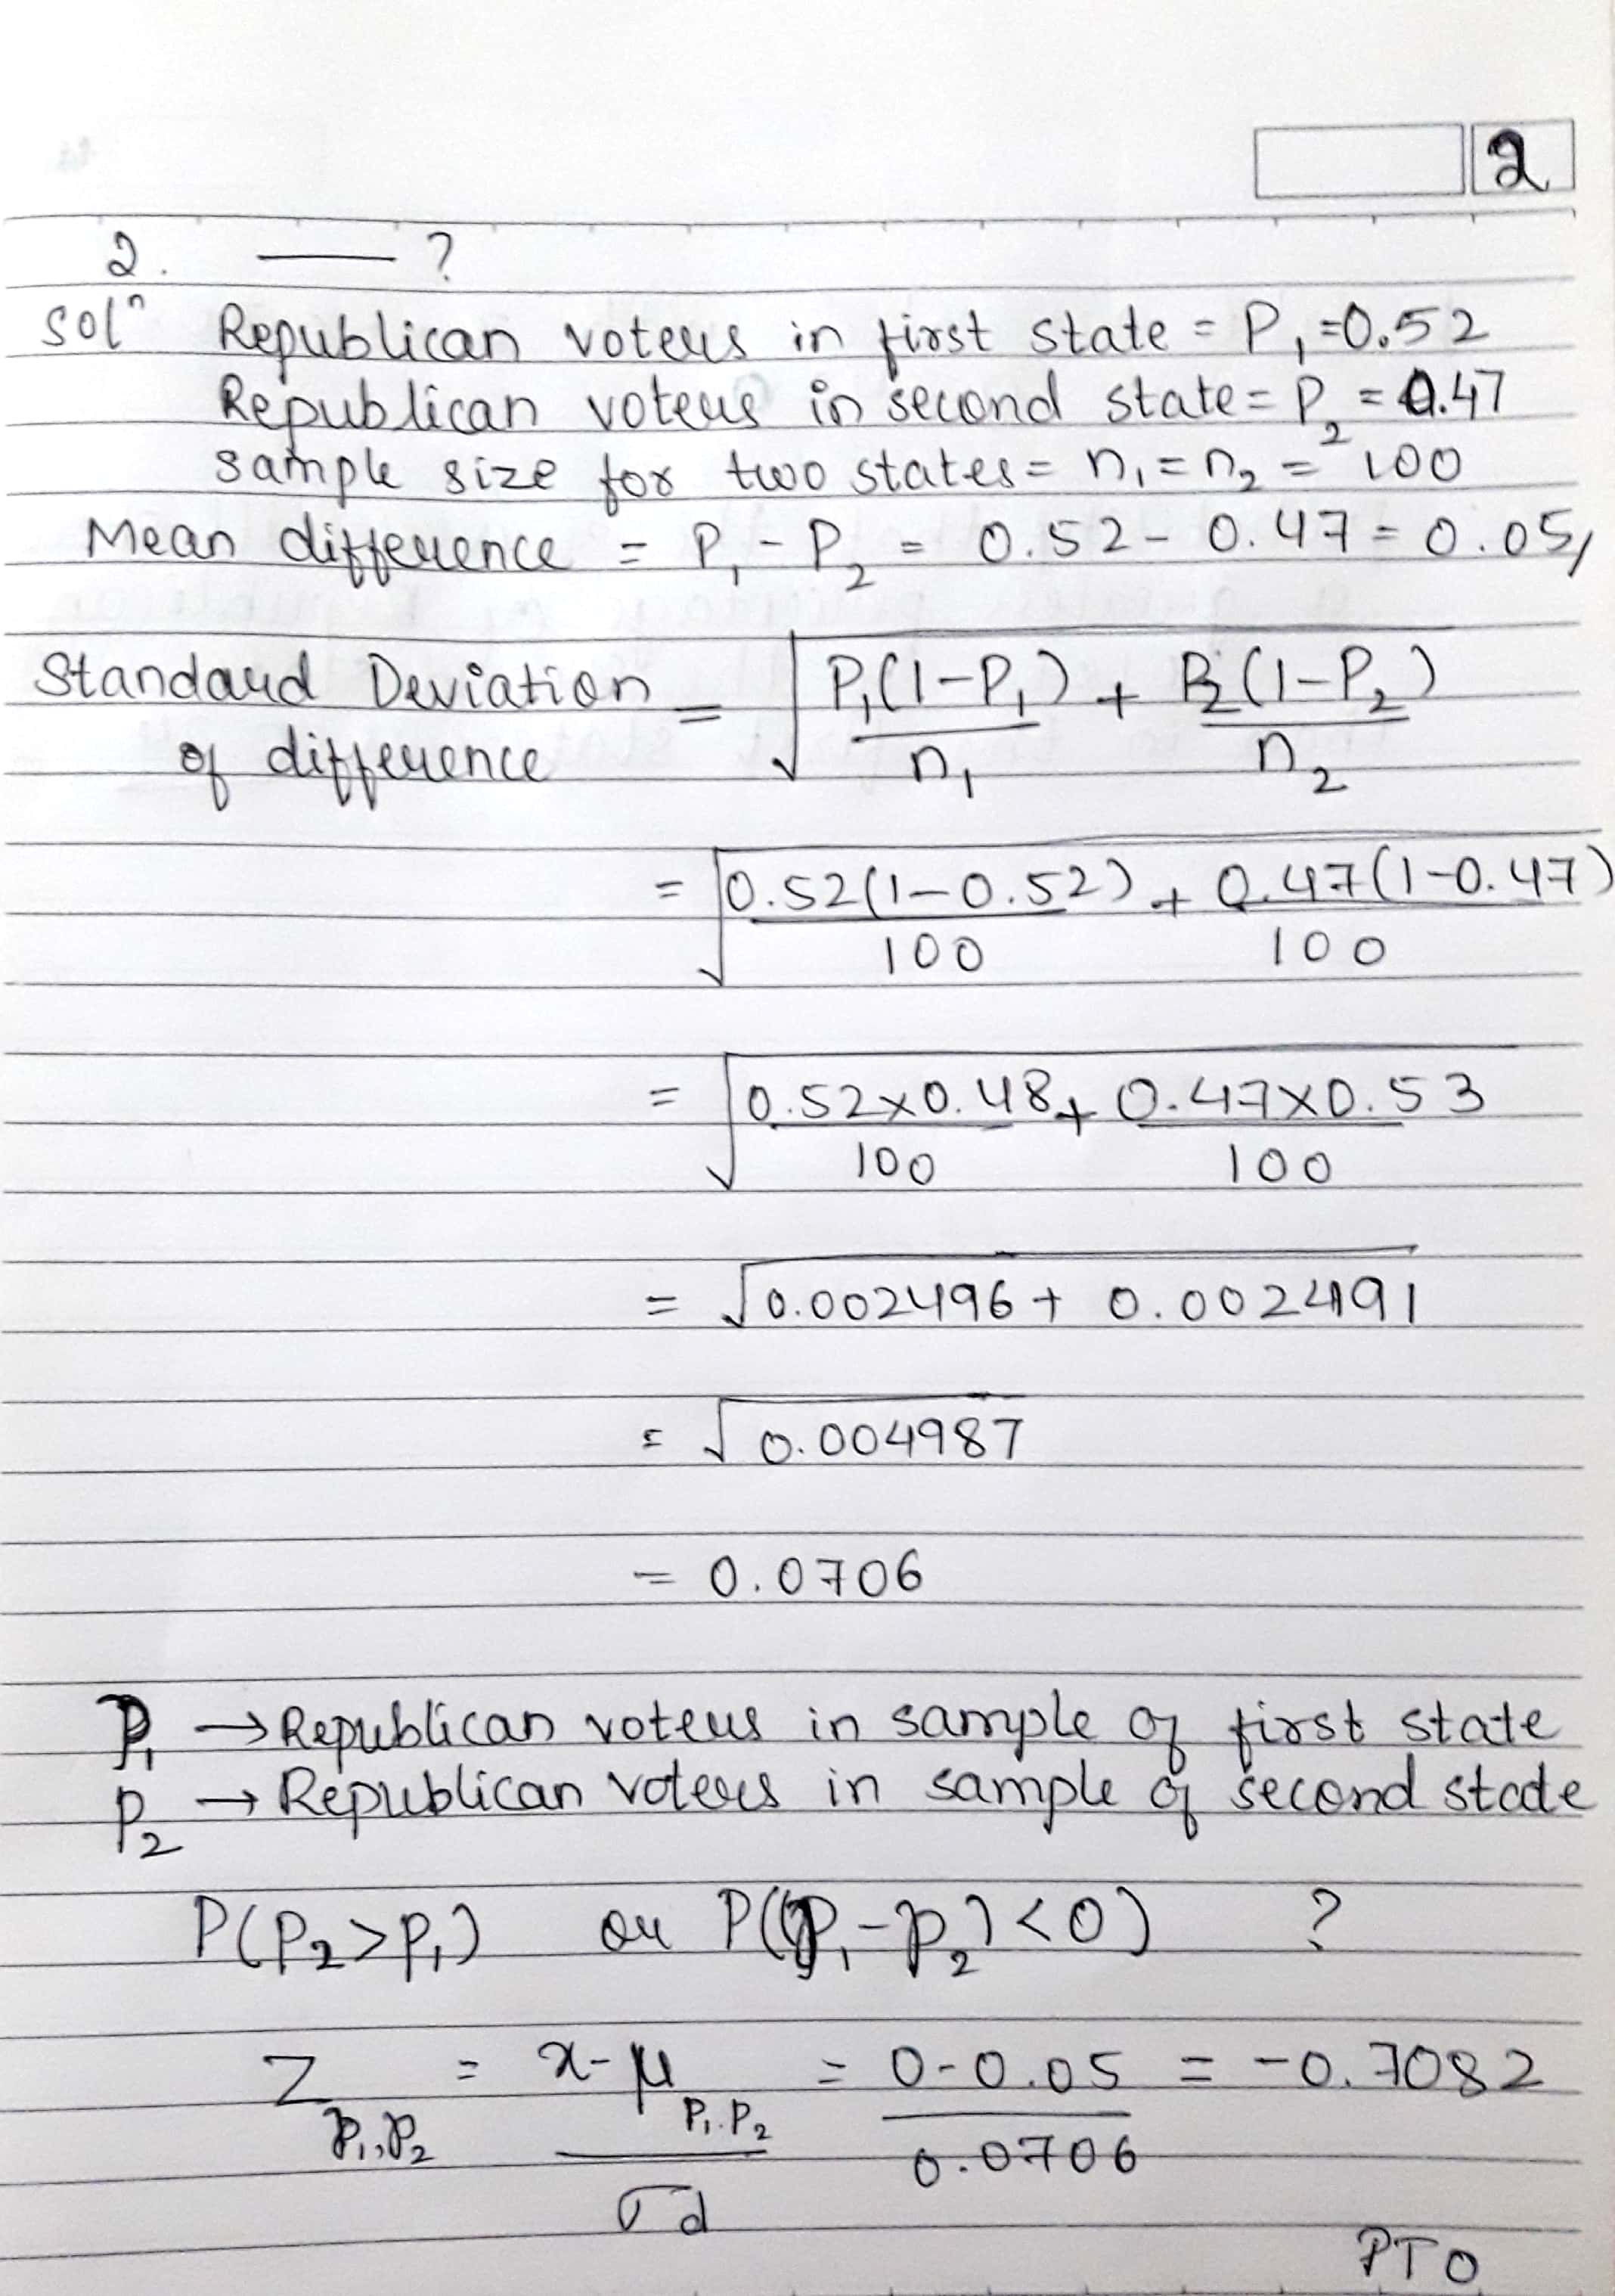 2
2. —— ?
Solⁿ Republican voters in first state = P₁ = 0.52
Republican voters in second state = P₂ = 0.47
sample size for two states = n₁ = n₂ = 100
Mean difference = P₁ - P₂ = 0.52 - 0.47 = 0.05,
Standard Deviation of difference = √(P₁(1-P₁)/n₁ + P₂(1-P₂)/n₂)
= √(0.52(1-0.52)/100 + 0.47(1-0.47)/100)
= √(0.52×0.48/100 + 0.47×0.53/100)
= √(0.002496 + 0.002491)
= √0.004987
= 0.0706
P₁ → Republican voters in sample of first state
P₂ → Republican voters in sample of second state
P(P₂>P₁) or P((P₁-P₂)<0) ?
Z P₁,P₂ = x-μ P₁.P₂ / σd = 0-0.05 / 0.0706 = -0.7082
PTO